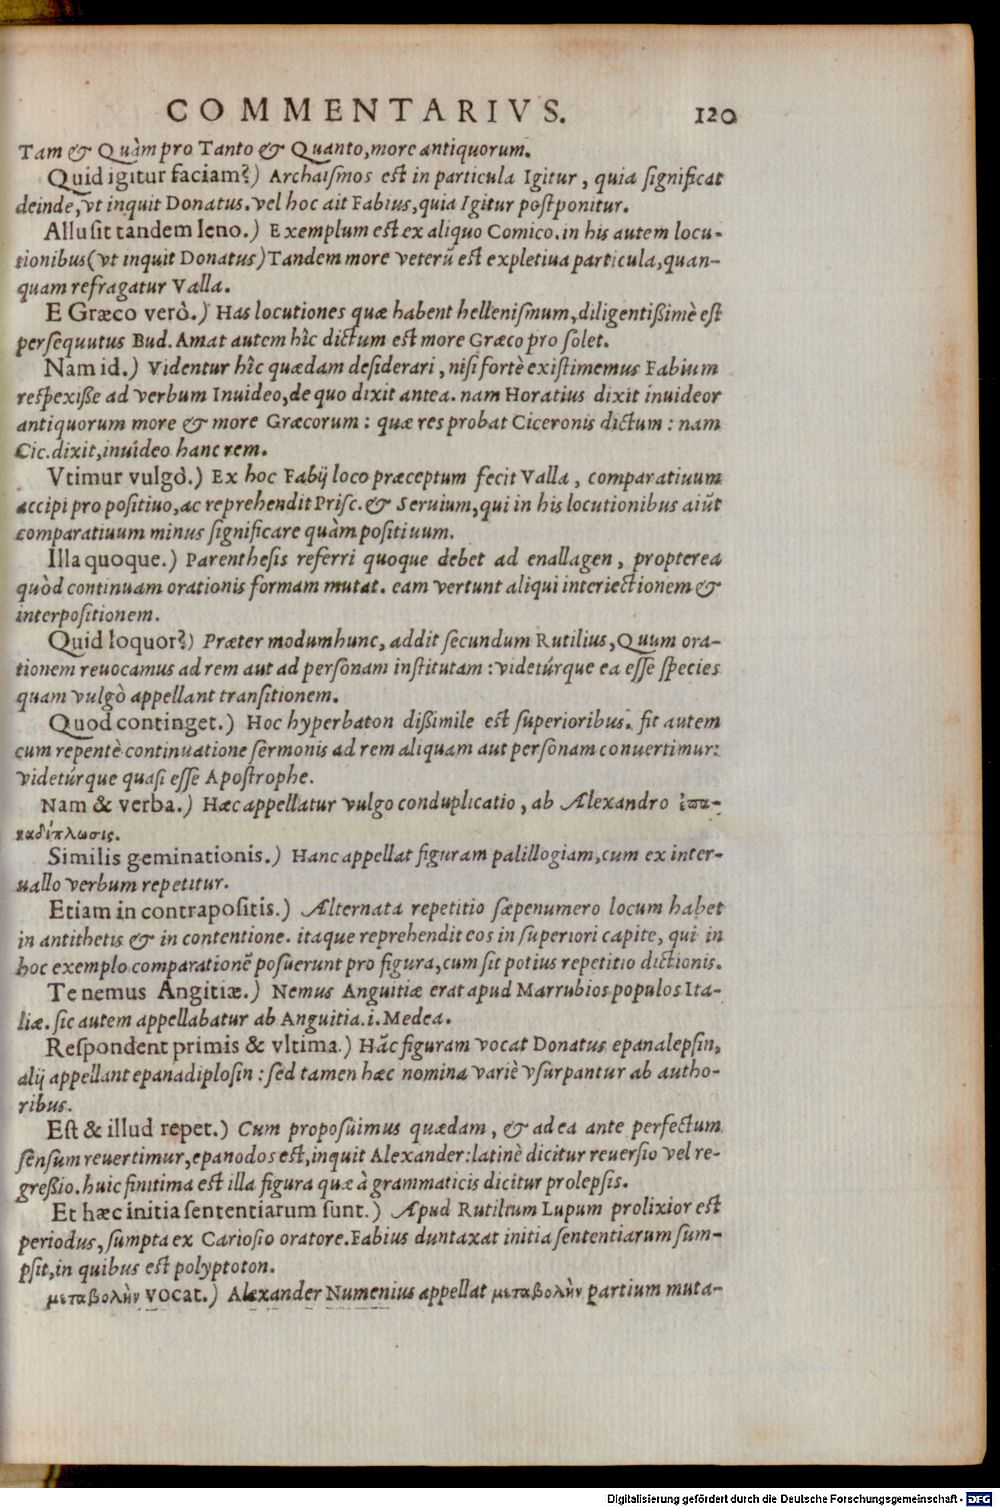 COMMENTARIVS. 120
Tam & Quàm pro Tanto & Quanto, more antiquorum.
Quid igitur faciam?) Archaiſmos eſt in particula Igitur, quia ſignificat
deinde, vt inquit Donatus. vel hoc ait Fabius, quia Igitur poſtponitur.
Alluſit tandem leno.) Exemplum eſt ex aliquo Comico. in his autem locu-
tionibus (vt inquit Donatus) Tandem more veterũ eſt expletiua particula, quan-
quam refragatur Valla.
E Græco verò.) Has locutiones quæ habent helleniſmum, diligentißimè eſt
perſequutus Bud. Amat autem hîc dictum eſt more Græco pro ſolet.
Nam id.) Videntur hîc quædam deſiderari, niſi fortè exiſtimemus Fabium
reſpexiße ad verbum Inuideo, de quo dixit antea. nam Horatius dixit inuideor
antiquorum more & more Græcorum: quæ res probat Ciceronis dictum: nam
Cic. dixit, inuideo hanc rem.
Vtimur vulgò.) Ex hoc Fabij loco præceptum fecit Valla, comparatiuum
accipi pro poſitiuo, ac reprehendit Priſc. & Seruium, qui in his locutionibus aiũt
comparatiuum minus ſignificare quàm poſitiuum.
Illa quoque.) Parentheſis referri quoque debet ad enallagen, propterea
quòd continuam orationis formam mutat. eam vertunt aliqui interiectionem &
interpoſitionem.
Quid loquor?) Præter modum hunc, addit ſecundum Rutilius, Quum ora-
tionem reuocamus ad rem aut ad perſonam inſtitutam: videtúrque ea eſſe ſpecies
quam vulgò appellant tranſitionem.
Quod continget.) Hoc hyperbaton dißimile eſt ſuperioribus. fit autem
cum repentè continuatione ſermonis ad rem aliquam aut perſonam conuertimur:
videtúrque quaſi eſſe Apoſtrophe.
Nam & verba.) Hæc appellatur vulgo conduplicatio, ab Alexandro ἐπα-
ναδίπλωσις.
Similis geminationis.) Hanc appellat figuram palillogiam, cum ex inter-
uallo verbum repetitur.
Etiam in contrapoſitis.) Alternata repetitio ſæpenumero locum habet
in antithetis & in contentione. itaque reprehendit eos in ſuperiori capite, qui in
hoc exemplo comparationẽ poſuerunt pro figura, cum ſit potius repetitio dictionis.
Te nemus Angitiæ.) Nemus Anguitiæ erat apud Marrubios populos Ita-
liæ. ſic autem appellabatur ab Anguitia. i. Medea.
Reſpondent primis & vltima.) Hãc figuram vocat Donatus epanalepſin,
alij appellant epanadiploſin: ſed tamen hæc nomina variè vſurpantur ab autho-
ribus.
Eſt & illud repet.) Cum propoſuimus quædam, & ad ea ante perfectum
ſenſum reuertimur, epanodos eſt, inquit Alexander: latinè dicitur reuerſio vel re-
greßio. huic finitima eſt illa figura quæ à grammaticis dicitur prolepſis.
Et hæc initia ſententiarum ſunt.) Apud Rutilium Lupum prolixior eſt
periodus, ſumpta ex Carioſio oratore. Fabius duntaxat initia ſententiarum ſum-
pſit, in quibus eſt polyptoton.
μεταβολὴν vocat.) Alexander Numenius appellat μεταβολὴν partium muta-
Digitalisierung gefördert durch die Deutsche Forschungsgemeinschaft - DFG